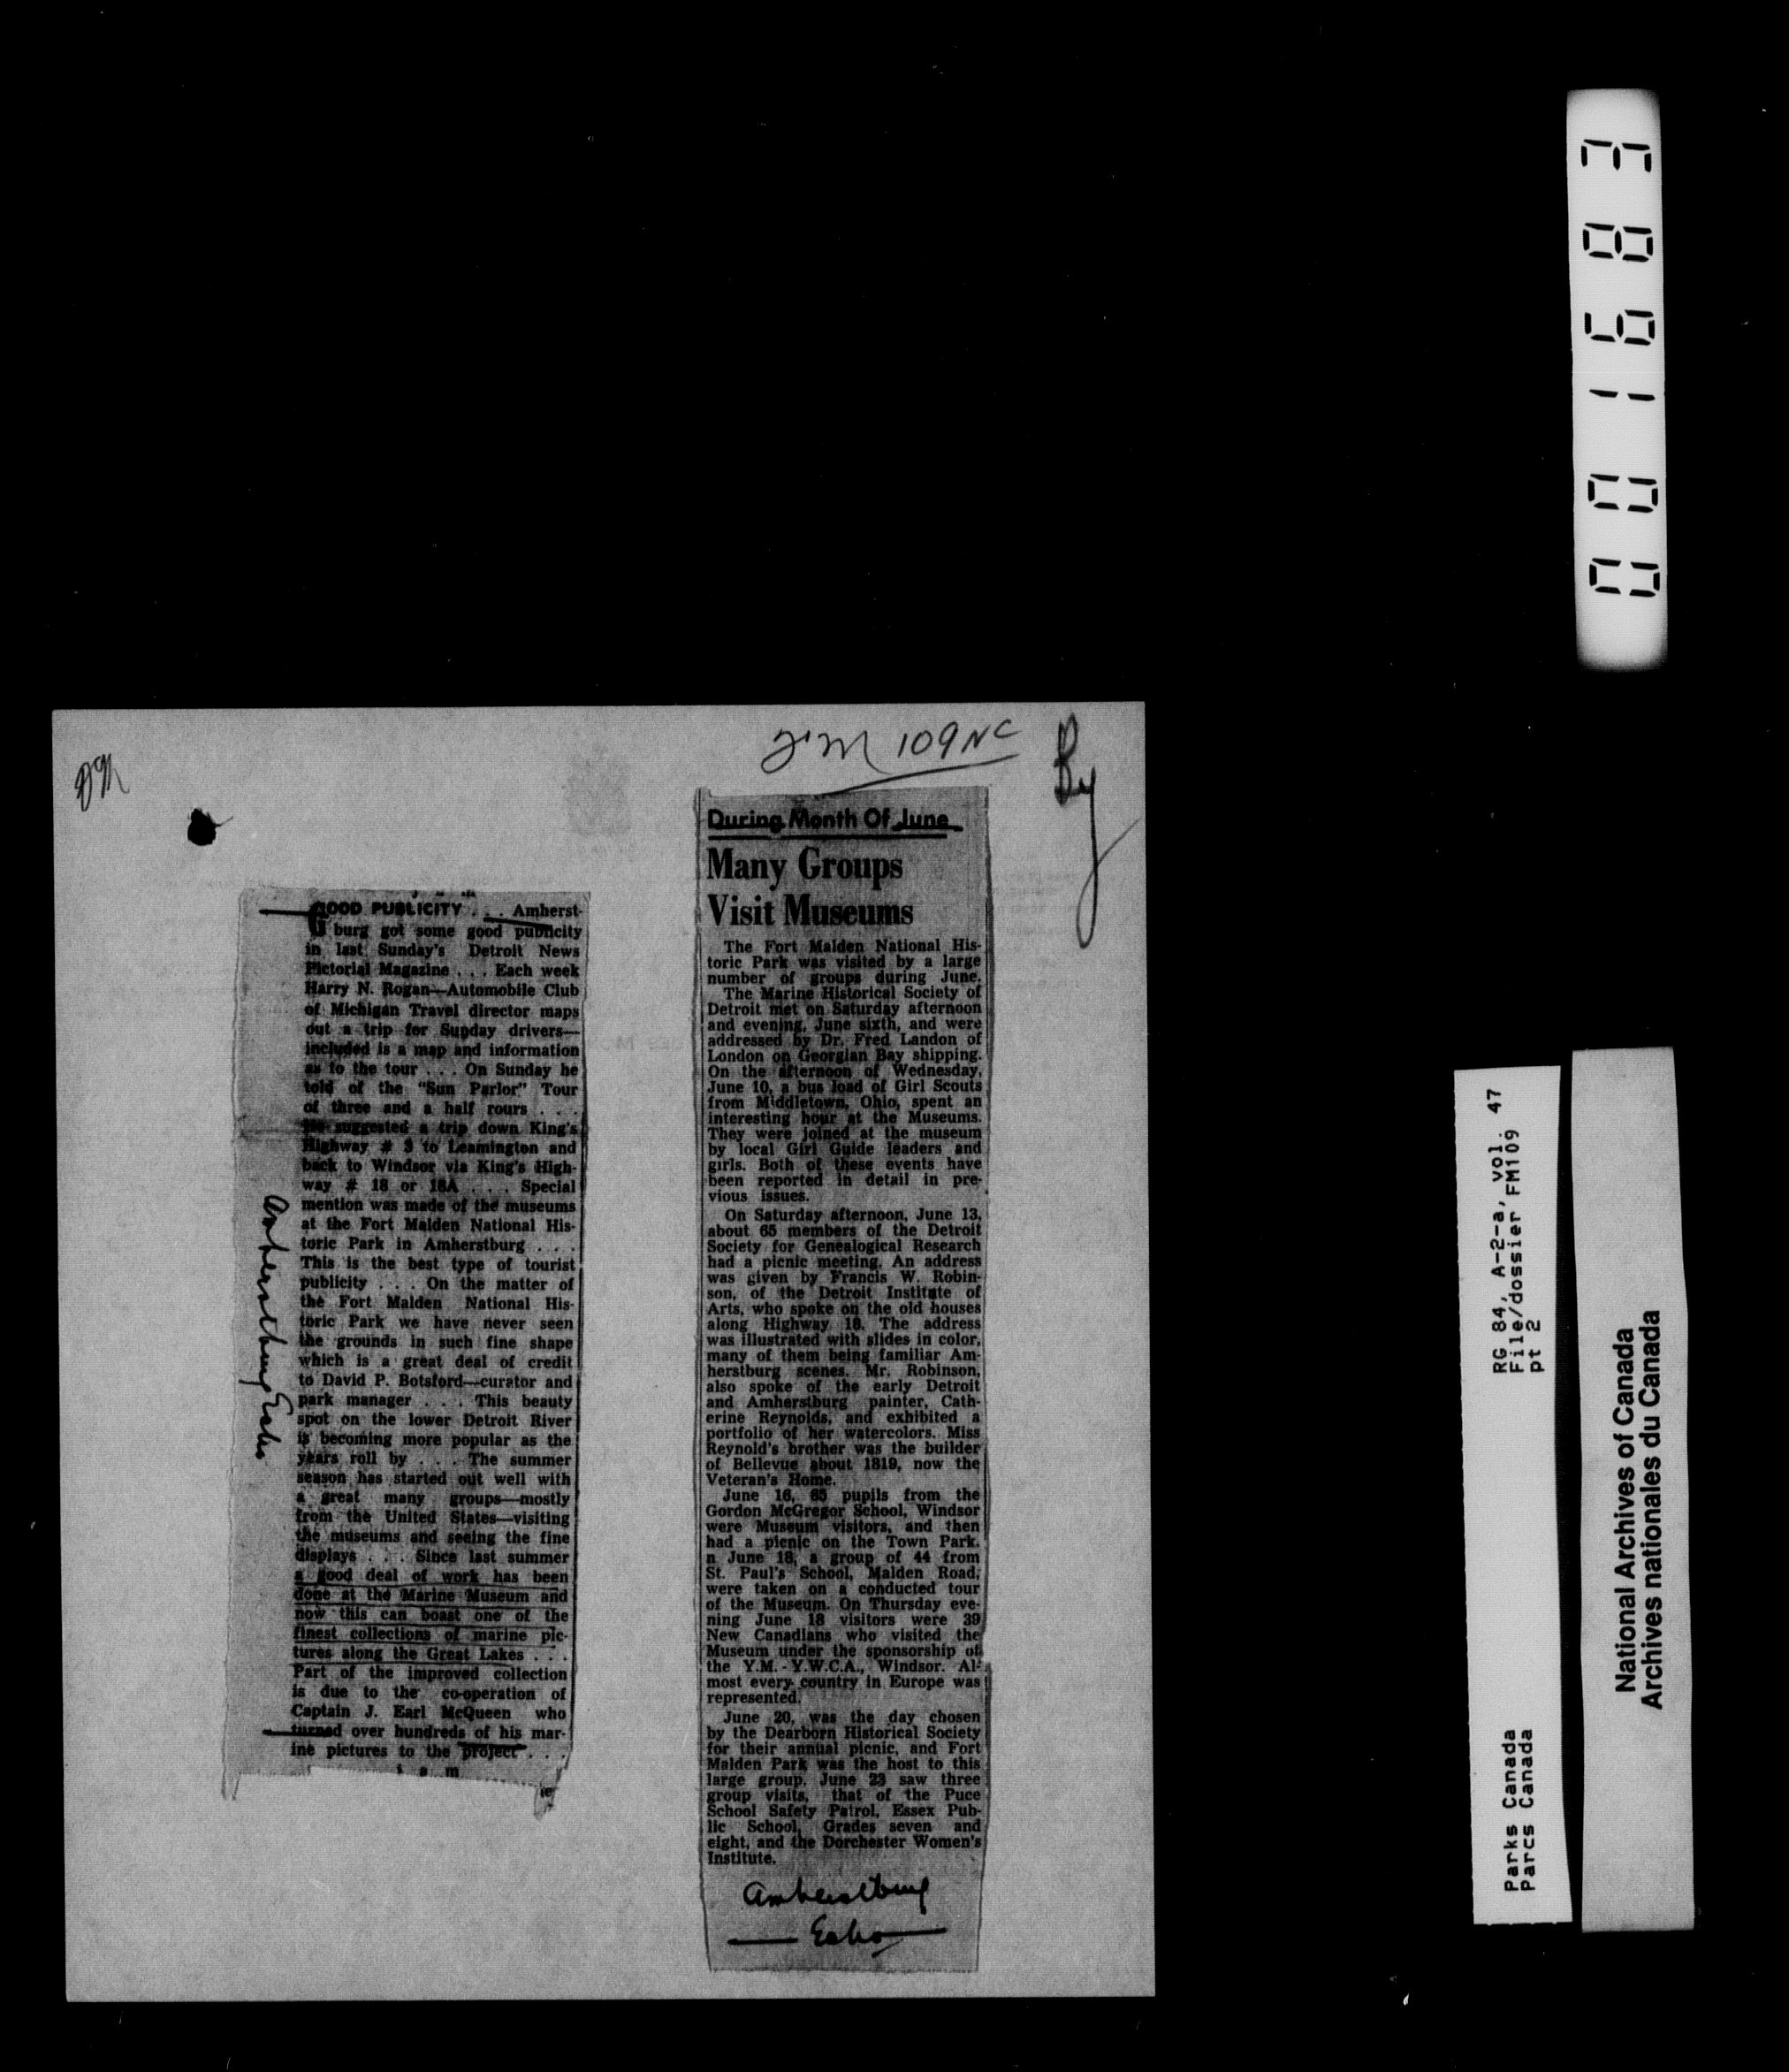 FM 109 NC
By
GOOD PUBLICITY . . . Amherst-
burg got some good publicity
in last Sunday's Detroit News
Pictorial Magazine . . . Each week
Harry N. Rogan—Automobile Club
of Michigan Travel director maps
out a trip for Sunday drivers—
included is a map and information
as to the tour . . . On Sunday he
told of the "Sun Parlor" Tour
of three and a half rours . . .
He suggested a trip down King's
Highway # 3 to Leamington and
back to Windsor via King's High-
way # 18 or 18A . . . Special
mention was made of the museums
at the Fort Malden National His-
toric Park in Amherstburg . . .
This is the best type of tourist
publicity . . . On the matter of
the Fort Malden National His-
toric Park we have never seen
the grounds in such fine shape
which is a great deal of credit
to David P. Botsford—curator and
park manager . . . This beauty
spot on the lower Detroit River
is becoming more popular as the
years roll by . . . The summer
season has started out well with
a great many groups—mostly
from the United States—visiting
the museums and seeing the fine
displays . . . Since last summer
a good deal of work has been
done at the Marine Museum and
now this can boast one of the
finest collections of marine pic-
tures along the Great Lakes . . .
Part of the improved collection
is due to the co-operation of
Captain J. Earl McQueen who
turned over hundreds of his mar-
ine pictures to the project . . .
Amherstburg Echo
During Month Of June
Many Groups
Visit Museums
The Fort Malden National His-
toric Park was visited by a large
number of groups during June.
The Marine Historical Society of
Detroit met on Saturday afternoon
and evening, June sixth, and were
addressed by Dr. Fred Landon of
London on Georgian Bay shipping.
On the afternoon of Wednesday,
June 10, a bus load of Girl Scouts
from Middletown, Ohio, spent an
interesting hour at the Museums.
They were joined at the museum
by local Girl Guide leaders and
girls. Both of these events have
been reported in detail in pre-
vious issues.
On Saturday afternoon, June 13,
about 65 members of the Detroit
Society for Genealogical Research
had a picnic meeting. An address
was given by Francis W. Robin-
son, of the Detroit Institute of
Arts, who spoke on the old houses
along Highway 18. The address
was illustrated with slides in color,
many of them being familiar Am-
herstburg scenes. Mr. Robinson,
also spoke of the early Detroit
and Amherstburg painter, Cath-
erine Reynolds, and exhibited a
portfolio of her watercolors. Miss
Reynold's brother was the builder
of Bellevue about 1819, now the
Veteran's Home.
June 16, 65 pupils from the
Gordon McGregor School, Windsor
were Museum visitors, and then
had a picnic on the Town Park.
n June 18, a group of 44 from
St. Paul's School, Malden Road,
were taken on a conducted tour
of the Museum. On Thursday eve-
ning June 18 visitors were 39
New Canadians who visited the
Museum under the sponsorship of
the Y.M. - Y.W.C.A., Windsor. Al-
most every country in Europe was
represented.
June 20, was the day chosen
by the Dearborn Historical Society
for their annual picnic, and Fort
Malden Park was the host to this
large group. June 23 saw three
group visits, that of the Puce
School Safety Patrol, Essex Pub-
lic School, Grades seven and
eight, and the Dorchester Women's
Institute.
Amherstburg
Echo
001683
Parks Canada
Parcs Canada
RG 84, A-2-a, vol. 47
File/dossier FM109
pt 2
National Archives of Canada
Archives nationales du Canada